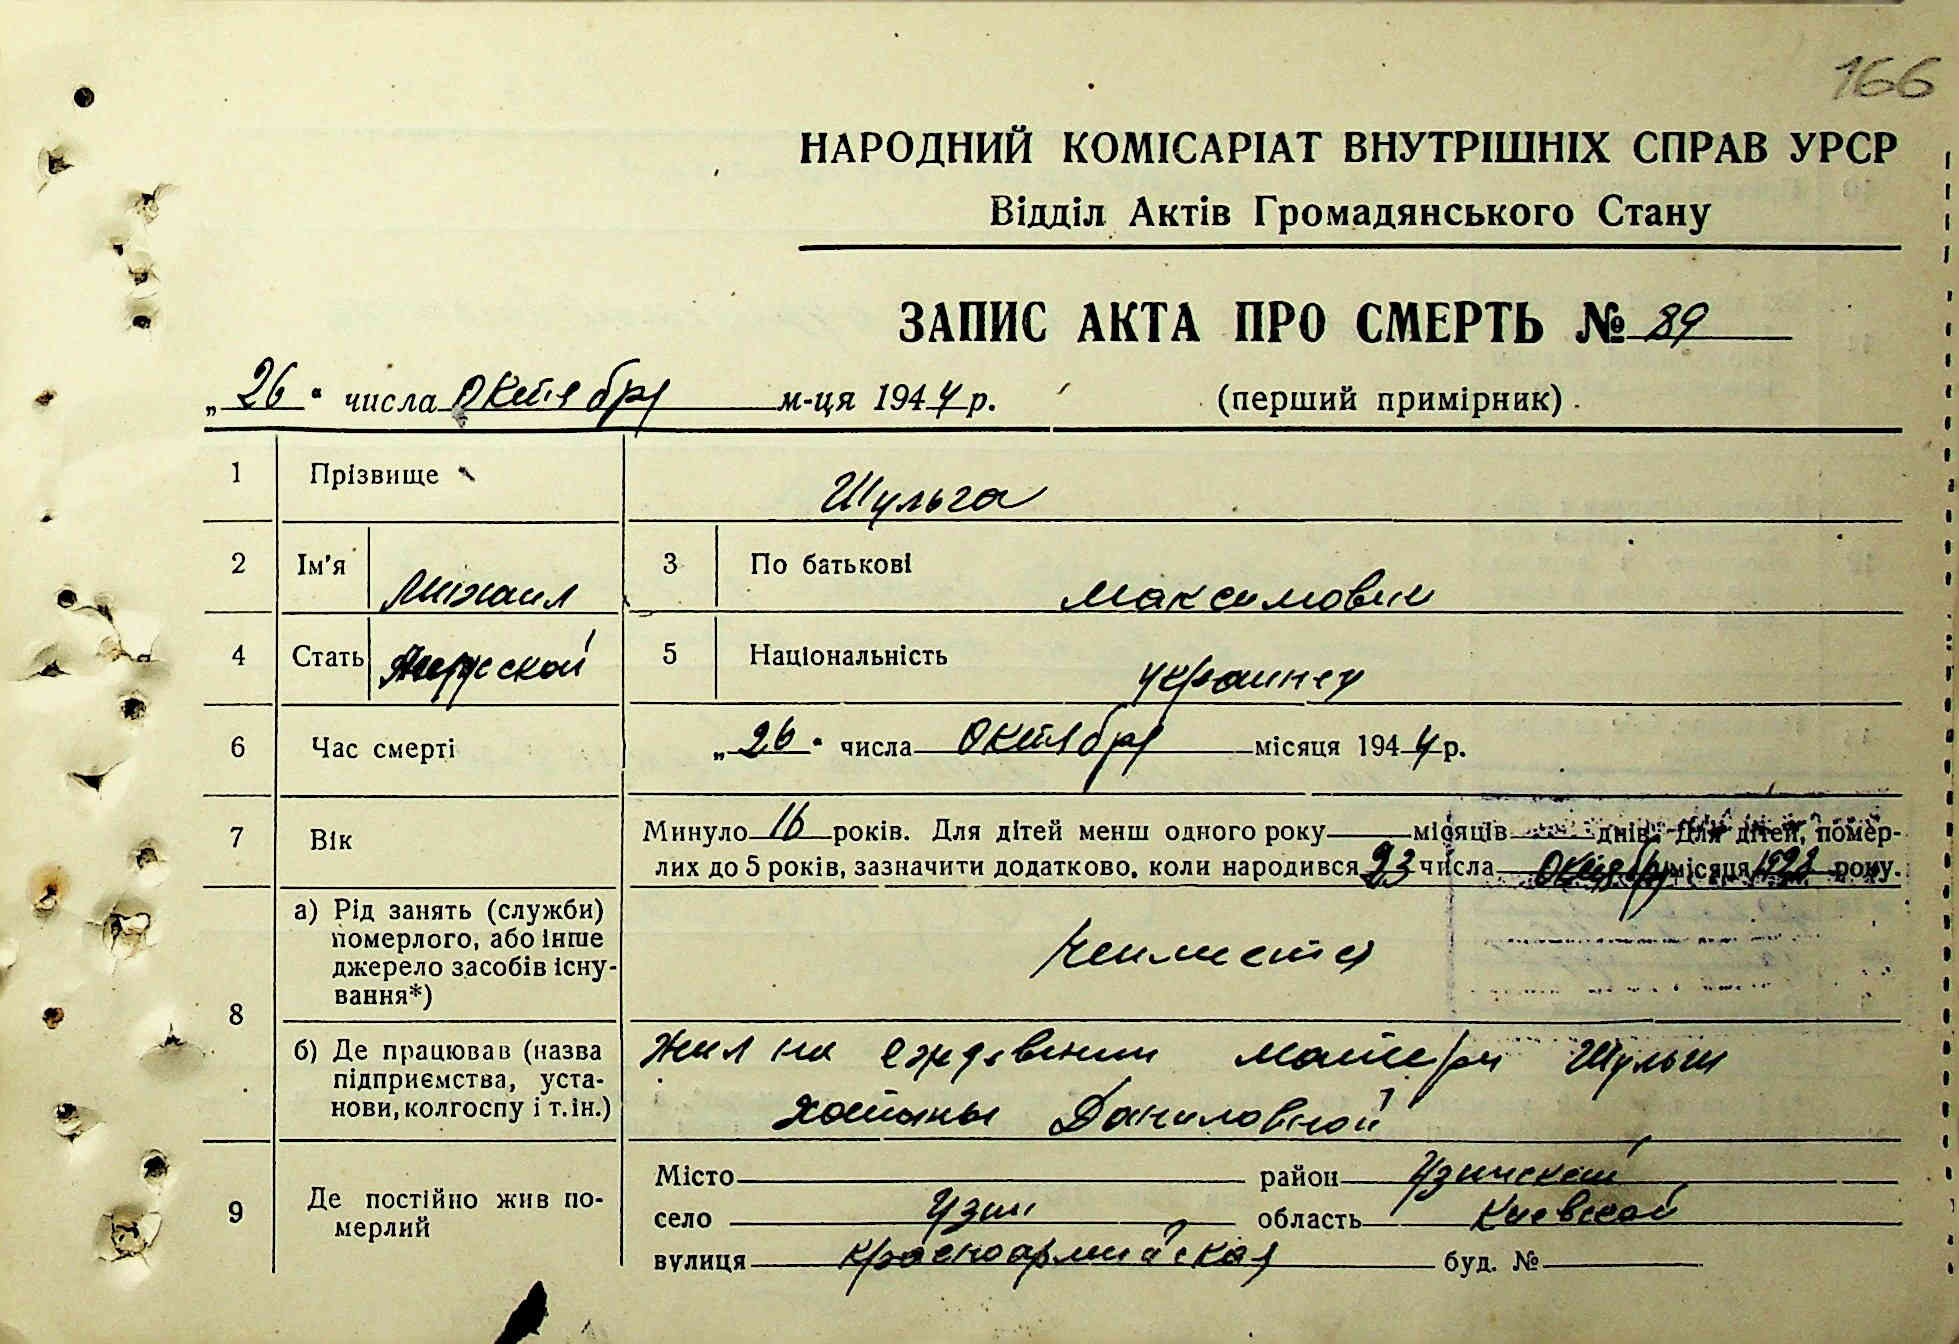 166
НАРОДНИЙ КОМІСАРІАТ ВНУТРІШНІХ СПРАВ УРСР
Відділ Актів Громадянського Стану
ЗАПИС АКТА ПРО СМЕРТЬ № 89
„26“ числа октября м-ця 1944 р. (перший примірник)
1 Прізвище Шульга
2 Ім'я Михаил 3 По батькові Максимович
4 Стать Мужской 5 Національність украинец
6 Час смерті „26“ числа октября місяця 1944 р.
7 Вік Минуло 16 років. Для дітей менш одного року місяців днів. Для дітей, помер-
лих до 5 років, зазначити додатково, коли народився 23 числа октября місяця року.
8 а) Рід занять (служби)
померлого, або інше
джерело засобів існу-
вання*)
б) Де працював (назва
підприємства, уста-
нови, колгоспу і т.ін.)
Жил на матери Шульги
Даниловной
9 Де постійно жив по-
мерлий
Місто район Узинский
село Узин область Киевской
вулиця красноармийская буд. №